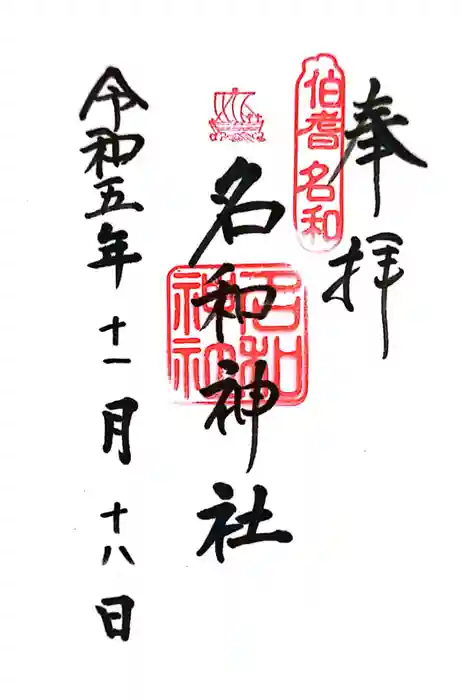 奉拝
伯耆名和
名和神社
名和神社
令和五年十一月十八日